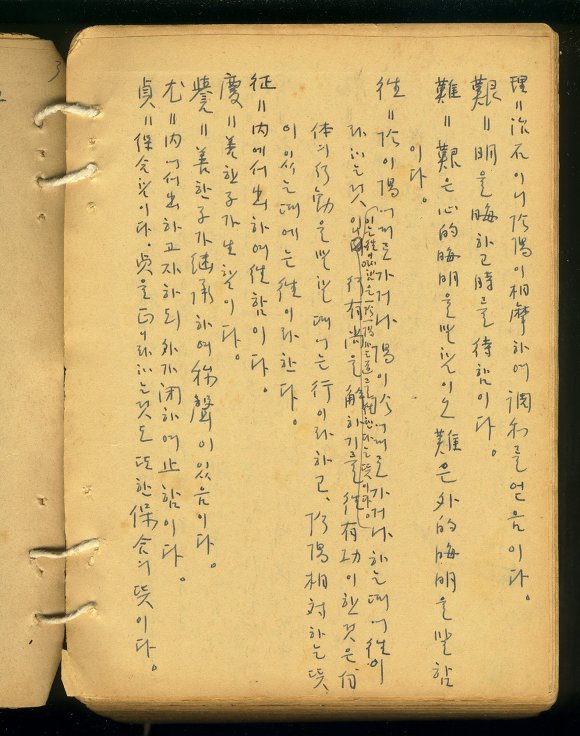 理=治石이니 陰陽이 相摩하여 調和를 얻음이다。
艱=明을 晦하고 時를 待함이다。
難=艱은 心的晦明을 말함이오 難은 外的晦明을 말함
이다。
往=陰이 陽에게로 가거나 陽이 陰에게로 가거나 하는 때에 往이
라 하는 것 行有尙을 解하기를 往有功이라 한 것은 
体의 行動을 말할 때에는 行이라 하고、陰陽相対하는 뜻
이 있는 때에는 往이라 한다。
征=内에서 出하여 往함이다。
慶=善한 子가 生함이다。
譽=善한 子가 継承하여 称聲이 있음이다。
尤=内에서 出하고자 하되 外가 閉하여 止함이다。
貞=保合함이다。貞을 正이라 하는 것도 또한 保合의 뜻이다。